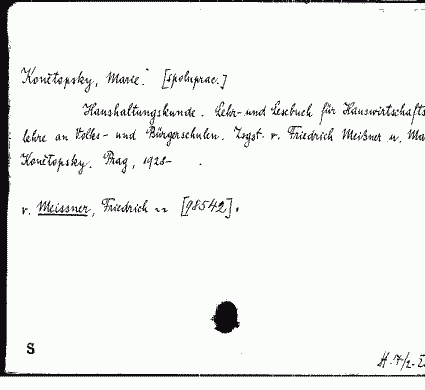 Konětopsky, Marie. [spoluprac.]
Haushaltungskunde. Lehr- und Lesebuch für Hauswirtschafts
lehre an Volks- und Bürgerschulen. Zsgst. v. Friedrich Meißner u. Ma
Konětopsky. Prag, 1928-
v. Meissner, Friedrich [98542].
S